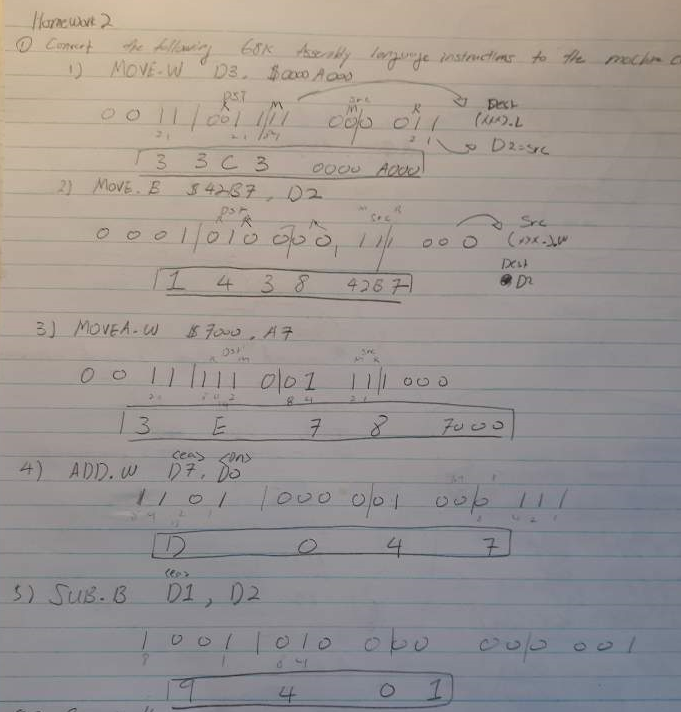 Homework 2
① Convert the following 68K Assembly language instructions to the machine
1) MOVE.W D3, $0000A000
DST R M src M R Dest
0 0 1 1 | 001 111 000 011 (xxx).L
2 1 2 1 8 4 2 1 D2=src
3 3 C 3 0000 A000
2) MOVE.B $42B7, D2
DST R M M src R Src
0 0 0 1 | 010 000 111 000 (xxx).W
Dest D2
1 4 3 8 42B7
3) MOVEA.W $7000, A7
R DST M src M R
0 0 1 1 | 111 001 111 000
2 1 8 4 2 1
3 E 7 8 7000
<ea> <Dn>
4) ADD.W D7, D0
1 1 0 1 | 000 001 000 111
D 0 4 7
<ea>
5) SUB.B D1, D2
1 0 0 1 | 010 000 000 001
8 1 8 4
9 4 0 1